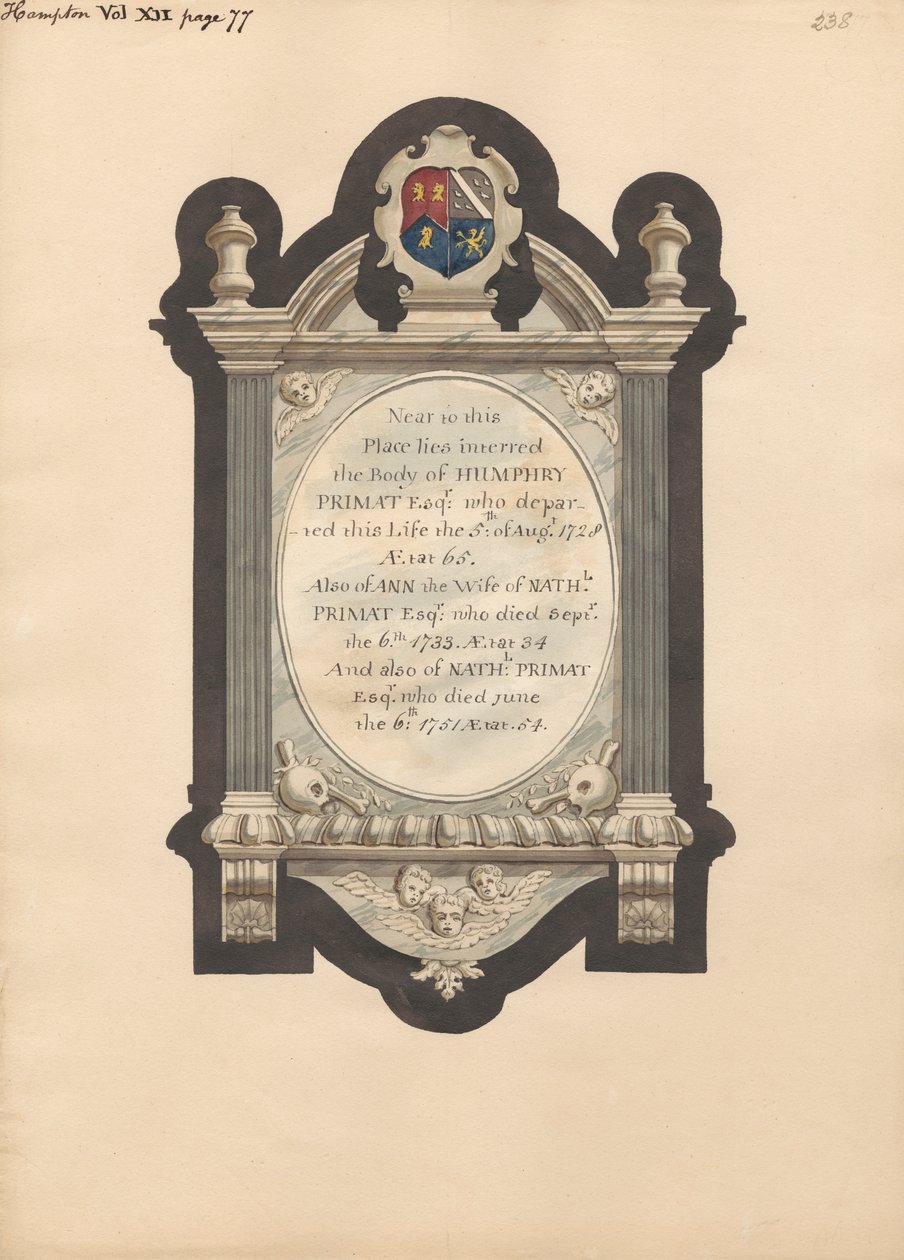 Hampton Vol XII page 77
238
Near to this
Place lies interred
the Body of HUMPHRY
PRIMAT Esqr: who depar-
-ted this Life the 5th: of Augt. 1728
Ætat 65.
Also of ANN the Wife of NATHL:
PRIMAT Esqr: who died Septr:
the 6th: 1733. Ætat 34
And also of NATHL: PRIMAT
Esqr: who died June
the 6th: 1751 Ætat. 54.